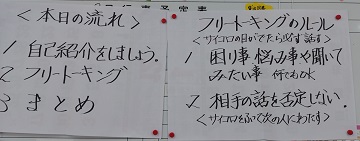 ＜本日の流れ＞
1 自己紹介をしましょう.
2 フリートーキング
3 まとめ
フリートーキングのルール
＜サイコロの目がでたら必ず話す＞
1 困り事 悩み事や聞いて
みたい事 何でもOK
2 相手の話を否定しない.
＜サイコロをふって次の人にわたす＞